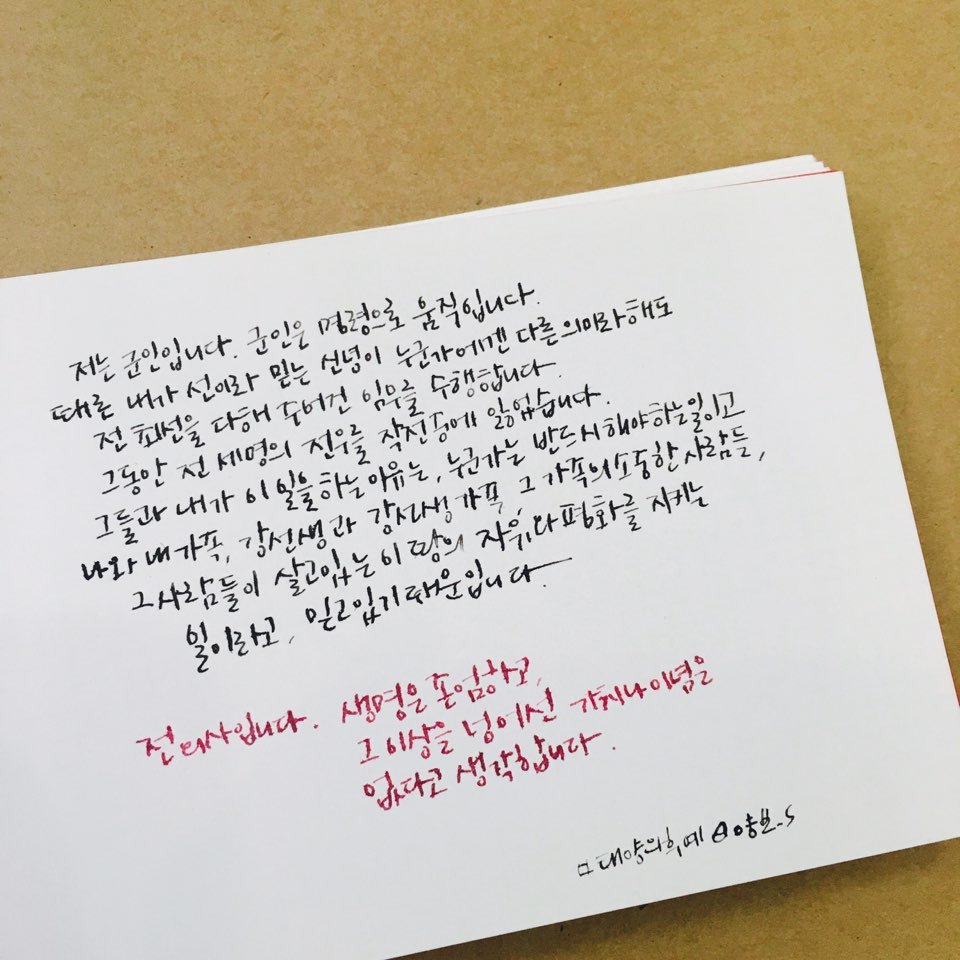 저는 군인입니다. 군인은 명령으로 움직입니다.
때론 내가 선이라 믿는 신념이 누군가에겐 다른 의미라 해도
전 최선을 다해 주어진 임무를 수행합니다.
그동안 전 세명의 전우를 작전중에 잃었습니다.
그들과 내가 이 일을 하는 이유는, 누군가는 반드시 해야 하는 일이고
나와 내 가족, 강선생과 강선생 가족, 그 가족의 소중한 사람들,
그 사람들이 살고있는 이 땅의 자유와 평화를 지키는
일이라고, 믿고있기 때문입니다.
전 의사입니다. 생명은 존엄하고,
그 이상을 넘어선 가치나 이념은
없다고 생각합니다.
태양의 후예